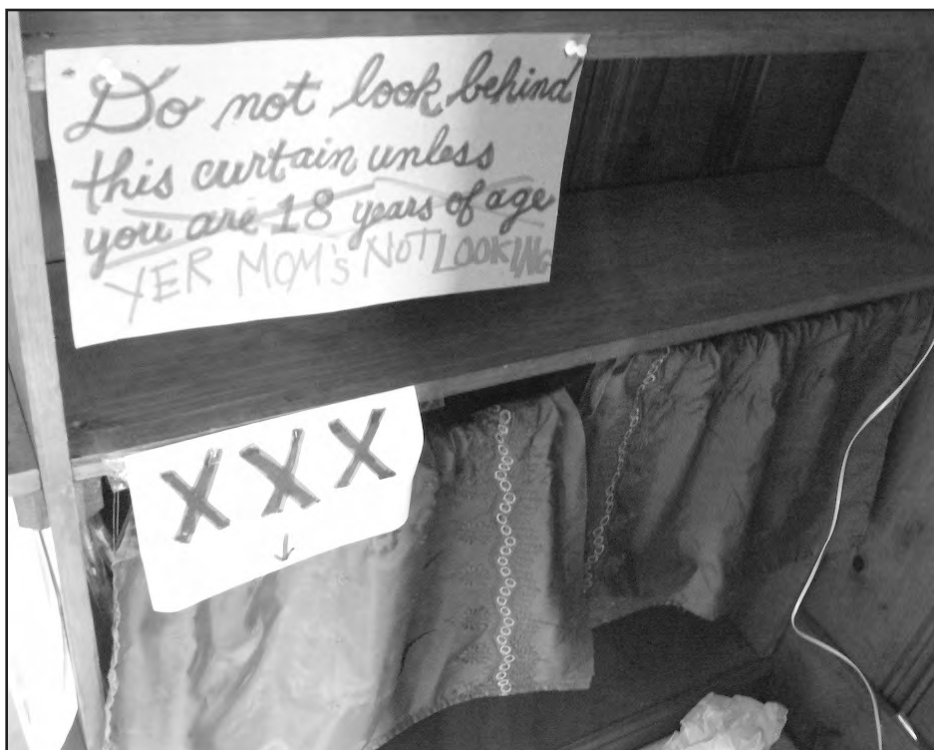 Do not look behind
this curtain unless
you are 18 years of age
YER MOM'S NOT LOOKING
XXX